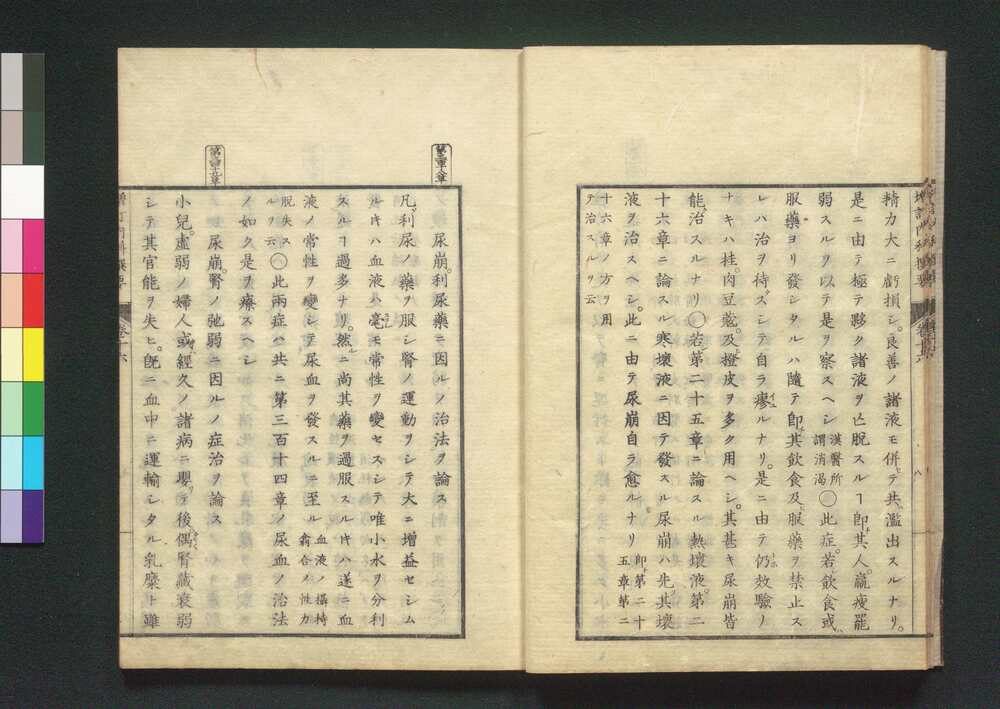 精力大ニ虧損シ。良善ノ諸液モ併テ共ニ濫出スルナリ。
是ニ由テ極テ夥ク諸液ヲ亡脱スルヿ即其人ノ羸瘦罷
弱スルヲ以テ是ヲ察スヘシ 漢醫所謂消渴 ○此症。若飲食或ハ
服藥ヨリ發シタルハ隨テ即其飲食及服藥ヲ禁止ス
レハ治ヲ待ズシテ自ラ瘳ルナリ。是ニ由テ仍效驗ノ
ナキハ桂。肉豆蔲。及橙皮ヲ多ク用ヘシ。其甚キ尿崩皆
能ク治スルナリ ○若第二十五章ニ論スル熱壞液。第二
十六章ニ論スル寒壞液ニ因テ發スル尿崩ハ先其壞
液ヲ治スヘシ。此ニ由テ尿崩自ラ愈ルナリ 即第二十五章第二
十六章ノ方ヲ用テ治スルヲ云
第三百十六章
尿崩。利尿藥ニ因ルノ治法ヲ論ス
凡利尿ノ藥ヲ服シ腎ノ運動ヲシテ大ニ增益セシム
ルキハ血液ハ毫モ常性ヲ變セスシテ唯小水ヲ分利
スルヿ過多ナリ。然ニ尚其藥ヲ過服スルキハ遂ニ血
液ノ常性ヲ變シテ尿血ヲ發スルニ至ル 血液ノ攝持舍合ノ性力
脱失スルヲ云 ○此兩症ハ共ニ第三百十四章ノ尿血ノ治法
ノ如ク是ヲ療スヘシ
尿崩。腎ノ弛弱ニ因ルノ症治ヲ論ス
小兒。虛弱ノ婦人或經久ノ諸病ニ嬰テ後偶腎臟衰弱
シテ其官能ヲ失ヒ。既ニ血中ニ運輸シタル乳糜ト雖